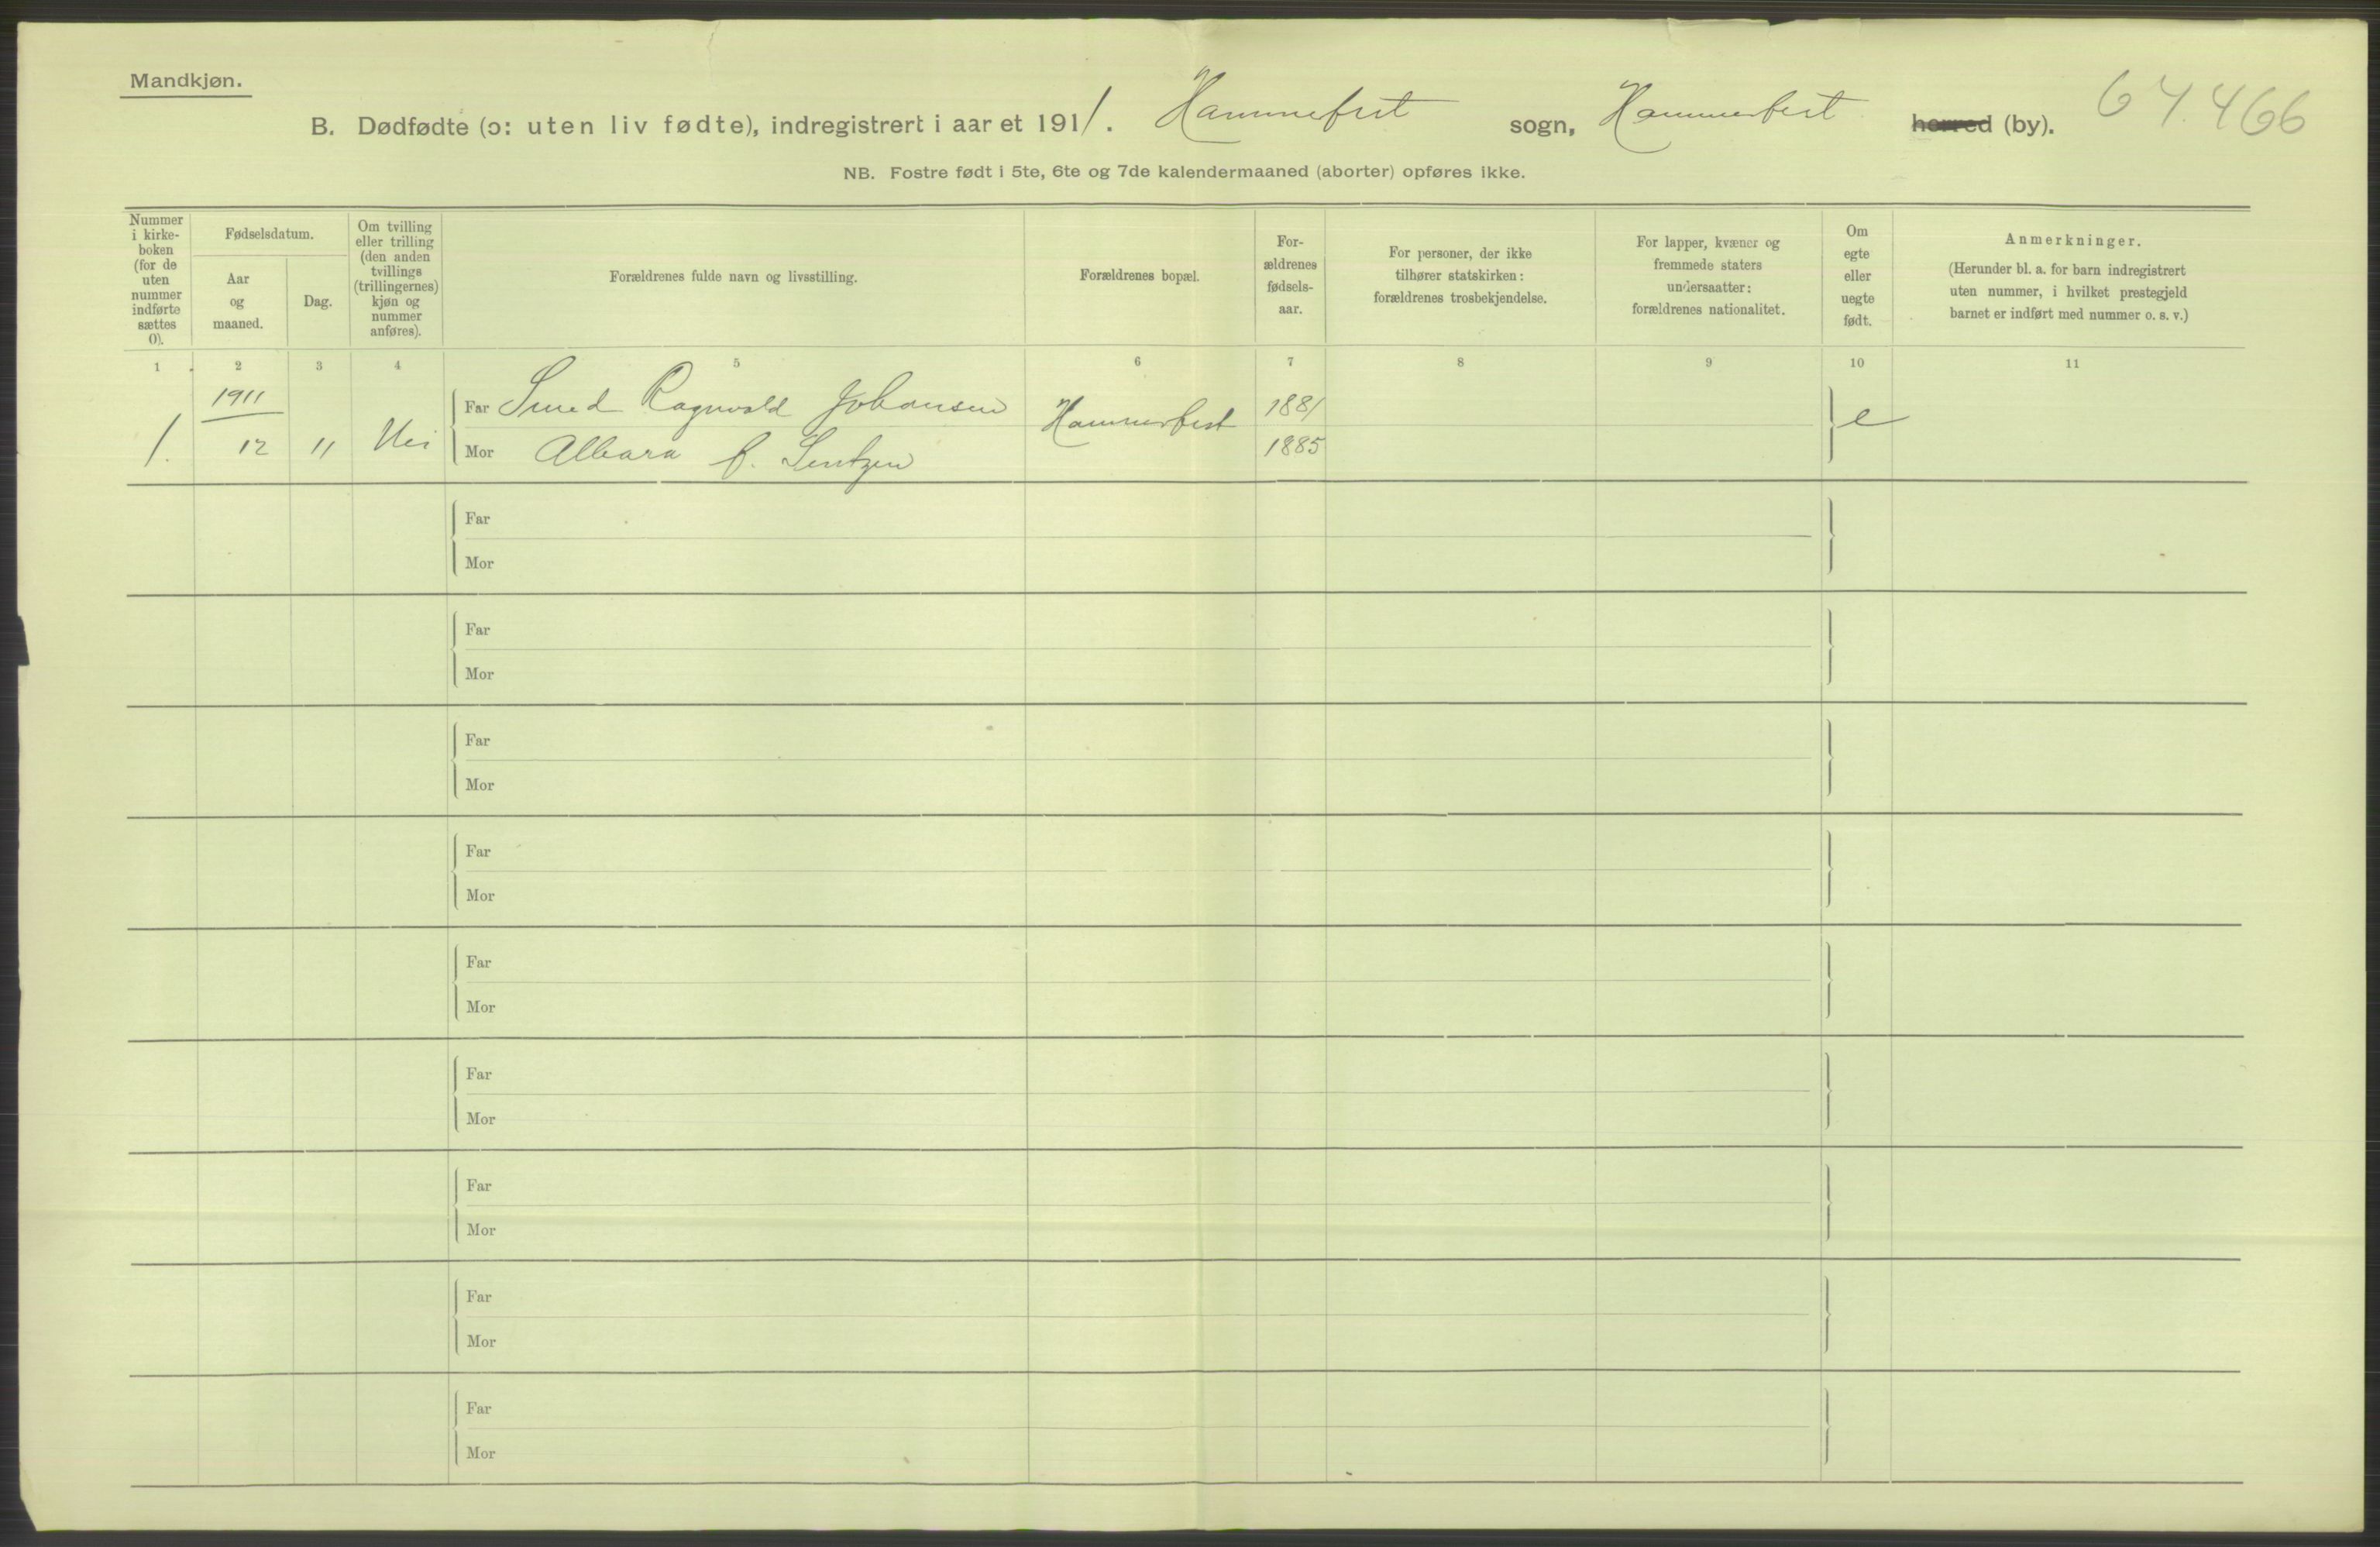 Mandkjøn.
B. Dødfødte (ɔ: uten liv fødte), indregistrert i aaret 1911. Hammerfest sogn, Hammerfest herred (by). 67.466
NB. Fostre født i 5te, 6te og 7de kalendermaaned (aborter) opføres ikke.
Nummer i kirke-boken (for de uten nummer indførte sættes 0).
Fødselsdatum.
Aar og maaned.
Dag.
Om tvilling eller trilling (den anden tvillings (trillingernes) kjøn og nummer anføres).
Forældrenes fulde navn og livsstilling.
Forældrenes bopæl.
For-ældrenes fødsels-aar.
For personer, der ikke tilhører statskirken: forældrenes trosbekjendelse.
For lapper, kvæner og fremmede staters undersaatter: forældrenes nationalitet.
Om egte eller uegte født.
Anmerkninger.
(Herunder bl. a. for barn indregistrert uten nummer, i hvilket prestegjeld barnet er indført med nummer o. s. v.)
1 2 3 4 5 6 7 8 9 10 11
1911
Far Smed Ragnvald Johansen Hammerfest 1881 e
1. 12 11 Nei Mor Albara f. Lentzen 1885
Far
Mor
Far
Mor
Far
Mor
Far
Mor
Far
Mor
Far
Mor
Far
Mor
Far
Mor
Far
Mor